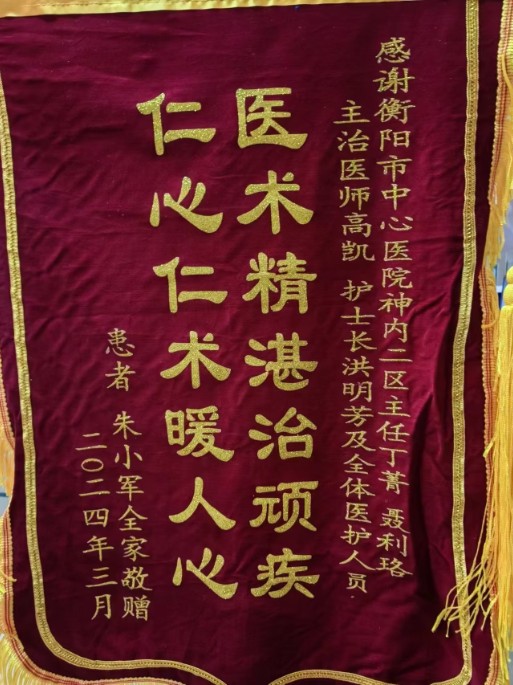 感谢衡阳市中心医院神内二区主任丁菁 聂利珞
主治医师高凯 护士长洪明芳及全体医护人员
医术精湛治顽疾
仁心仁术暖人心
患者 朱小军全家敬赠
二〇二四年三月